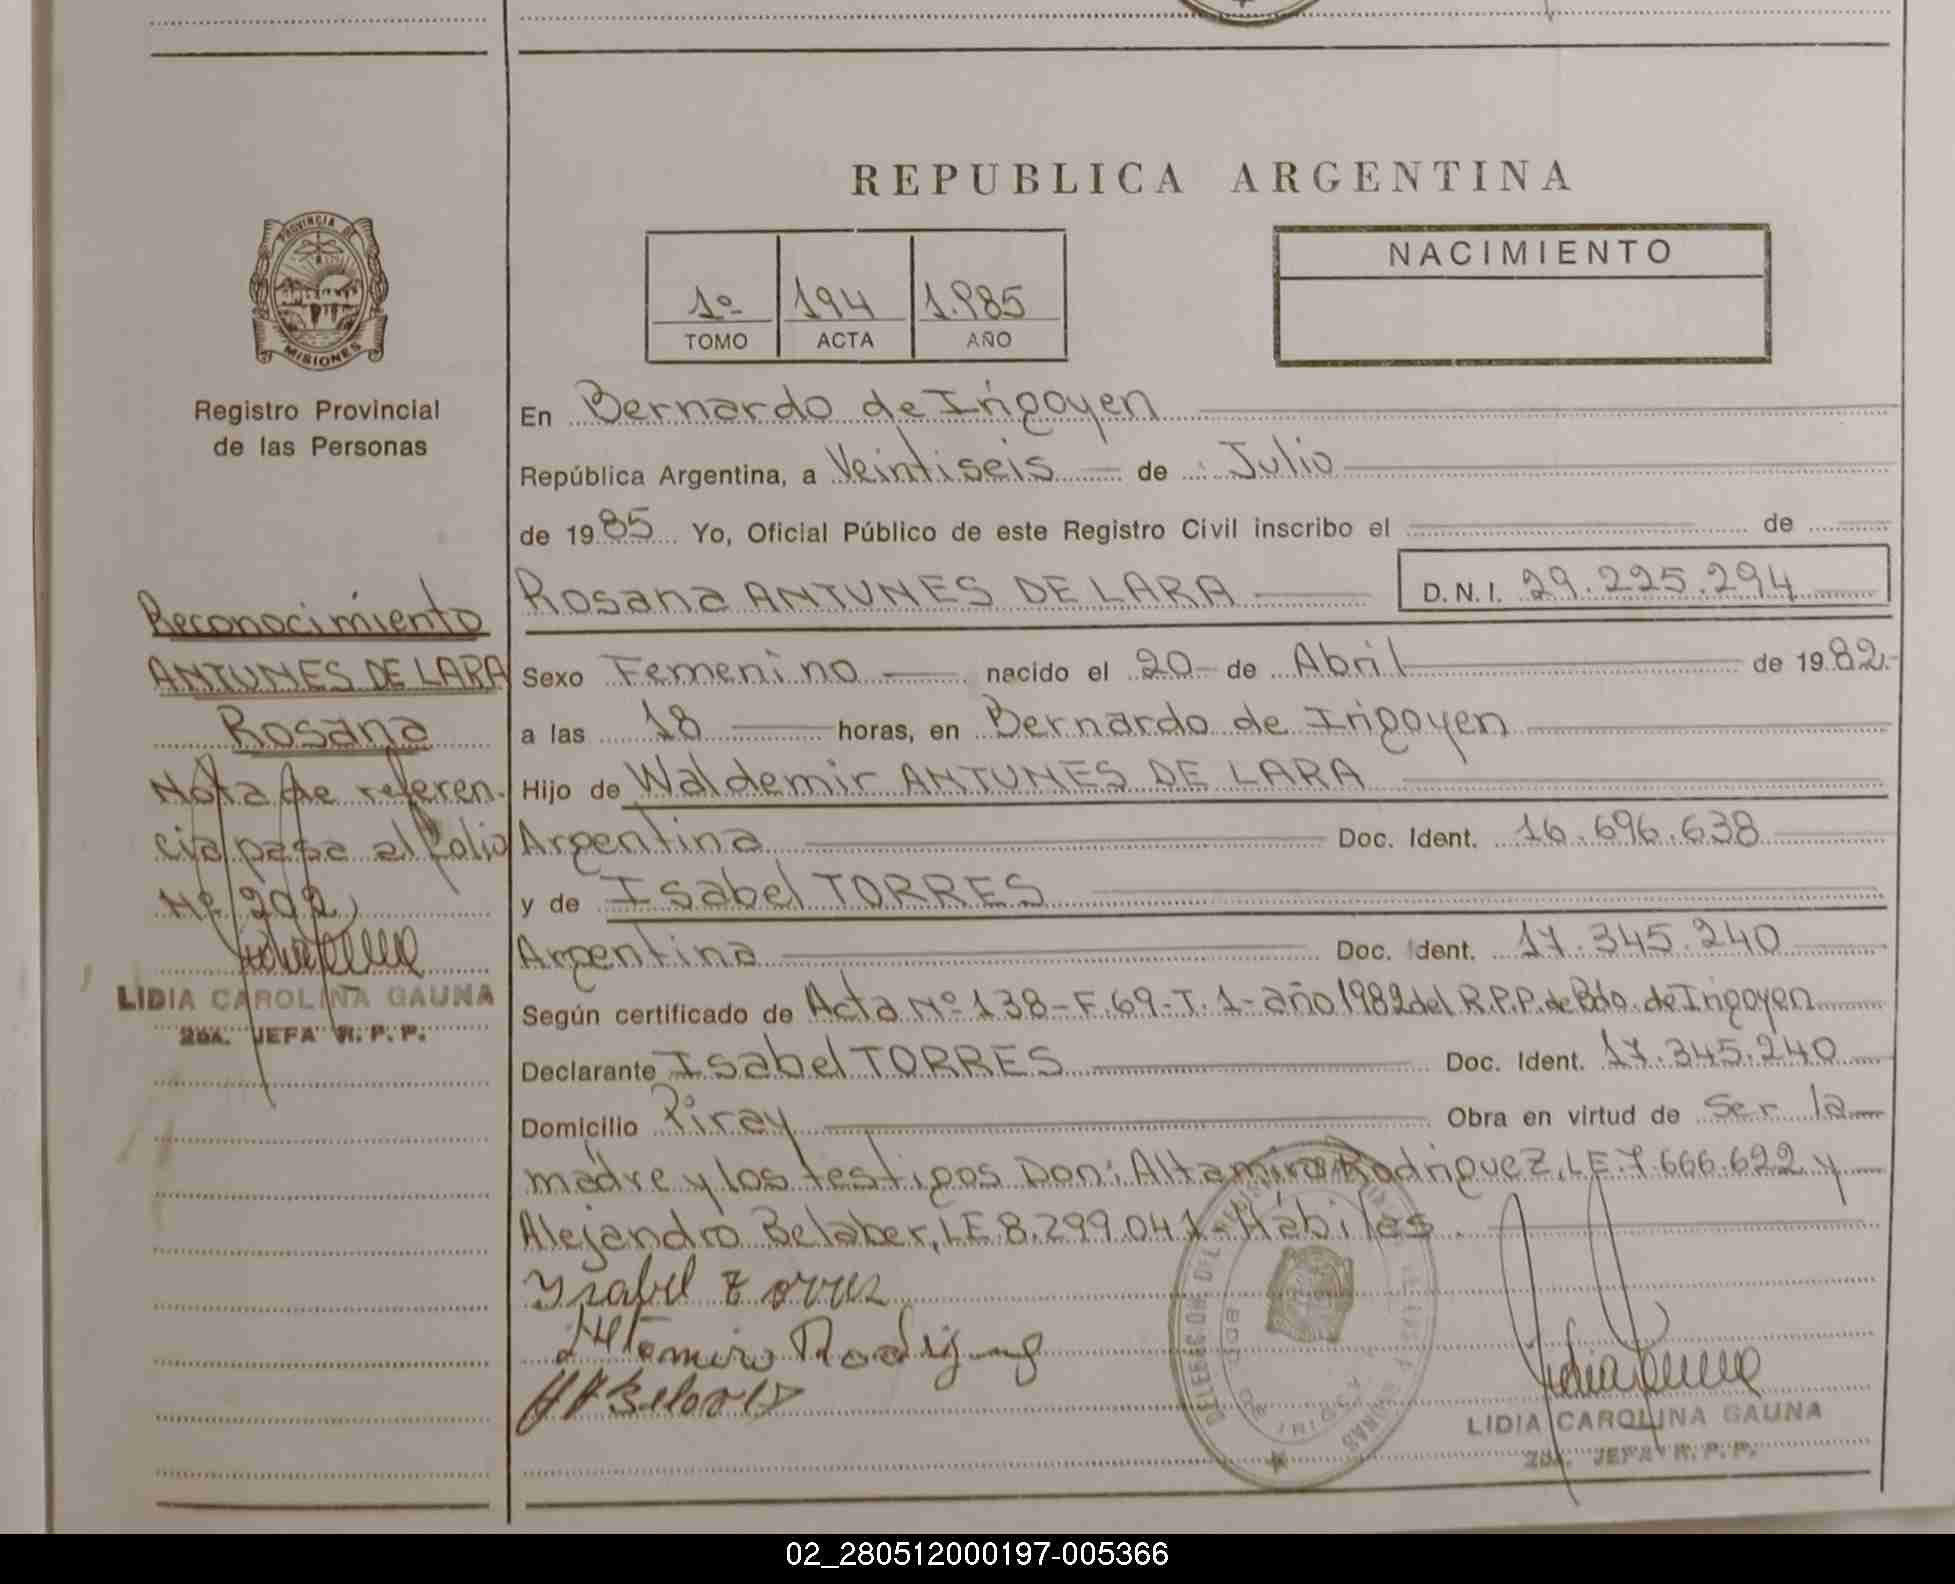 REPUBLICA ARGENTINA
PROVINCIA DE
MISIONES
Registro Provincial
de las Personas
1º 194 1.985
TOMO ACTA AÑO
NACIMIENTO
En Bernardo de Irigoyen
República Argentina, a Veintiseis de Julio
de 1985 Yo, Oficial Público de este Registro Civil inscribo el de
Rosana ANTUNES DE LARA D.N.I. 29.225.294
Sexo Femenino nacido el 20 de Abril de 1982.
a las 18 horas, en Bernardo de Irigoyen
Hijo de Waldemir ANTUNES DE LARA
Argentina Doc. Ident. 16.696.638
y de Isabel TORRES
Argentina Doc. Ident. 17.345.240
Según certificado de Acta Nº 138-F.69-T.1-año 1982 del R.P.P. de Bdo. de Irigoyen
Declarante Isabel TORRES Doc. Ident. 17.345.240
Domicilio Piray Obra en virtud de ser la
madre y los testigos Don: Altamiro Rodriguez, LE.7.666.622 y
Alejandro Belaber, LE 8.299.041-Hábiles.
Ysabel Torres
Altamiro Rodriguez
LIDIA CAROLINA GAUNA
2DA. JEFA R. P. P.
Reconocimiento
ANTUNES DE LARA
Rosana
Nota de referen-
cia pasa al folio
Nº 202
LIDIA CAROLINA GAUNA
2DA. JEFA R. P. P.
02_280512000197-005366